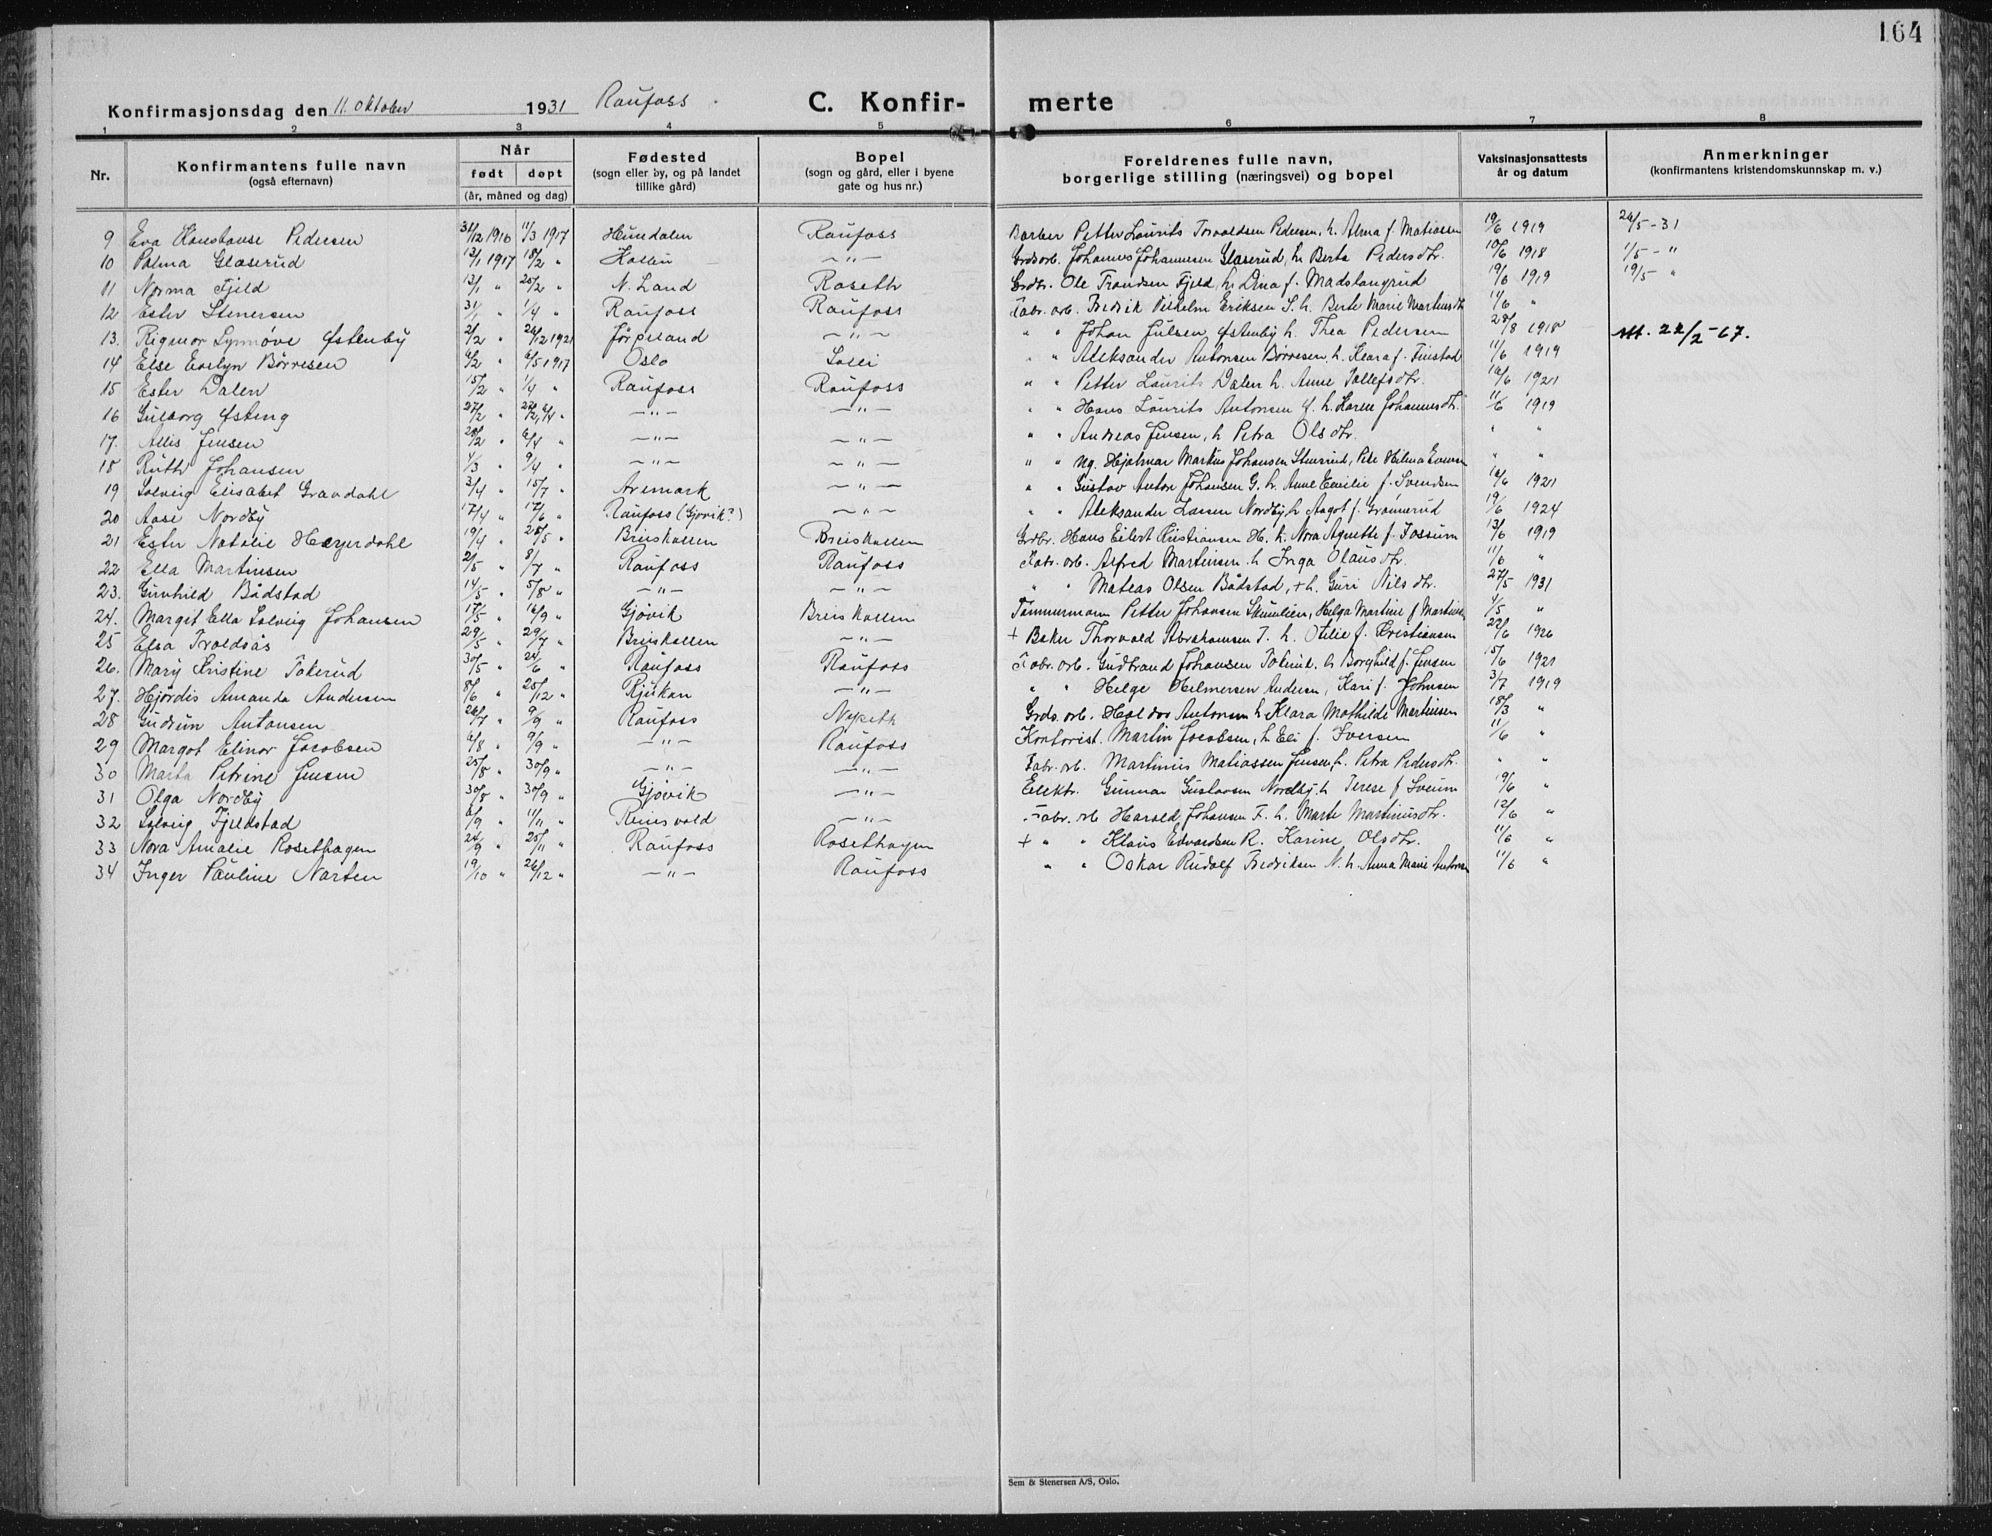 164
Konfirmasjonsdag den 11. oktober 1931 Raufoss. C. Konfir- merte
1 2 3 4 5 6 7 8
Nr. Konfirmantens fulle navn (også efternavn) Når født døpt (år, måned og dag) Fødested (sogn eller by, og på landet tillike gård) Bopel (sogn og gård, eller i byene gate og hus nr.) Foreldrenes fulle navn, borgerlige stilling (næringsvei) og bopel Vaksinasjonsattests år og datum Anmerkninger (konfirmantens kristendomskunnskap m. v.)
9 Eva Konstanse Pedersen 31/12 1916 11/3 1917 Hundalen Raufoss Barber Petter Laurits Torvaldsen Pedersen, h. Alma f. Matiassen 19/6 1919 26/5-31
10 Palma Glæserud 13/1 1917 18/2 " Kolbu —"— Grdsarb. Johannes Johannesen Glæserud, h. Berta Pedersdtr. 10/6 1918 1/5 - "
11 Norma Fjeld 13/1 " 25/2 " N. Land Roseth Grdbr. Ole Trondsen Fjeld, h. Dina f. Madslangrud 19/6 1919 19/5 "
12 Ester Stenersen 31/1 " 1/4 " Raufoss Raufoss Fabr. arb. Fredrik Vilhelm Eriksen S. h. Berte Marie Martinsdtr 11/6 "
13. Rigmor Synnøve Østenby 2/2 " 26/12 1921 Jørpeland —"— " " Johan Julsen Østenby h. Thea Pedersen 28/8 1918 Att. 22/2-67.
14 Else Evelyn Børresen 6/2 " 6/5 1917 Oslo " " Aleksander Antonsen Børresen, h. Klara f. Finstad 11/6 1919
15 Ester Dalen 15/2 " 1/4 " Raufoss Raufoss " " Petter Laurits Dalen h. Anne Tollefsdtr. 16/6 1921
16 Gulborg Østeng 27/2 " —"— —"— " " Hans Laurits Antonsen Ø. h. Karen Johannesdtr. 11/6 1919
17. Allis Jensen 28/2 " 6/4 " —"— —"— " " Andreas Jensen, h. Petra Olsdtr. " "
18 Ruth Johansen 4/3 " 9/4 " —"— —"— " " Ug. Hjalmar Markus Johansen Stenrud, Pike Helma Evensen " "
19 Solveig Elisabet Gravdahl 3/4 " 15/7 " Aremark —"— " " Gustav Anton Johansen G. h. Anne Emilie f. Svendsen 16/6 1921
20 Aase Nordby 17/4 " 17/6 " Raufoss (Gjøvik?) —"— " " Aleksander Larsen Nordby, h. Aagot f. Grønnerud 19/6 1924
21 Ester Natalie Heyerdahl 19/4 " 28/5 " Breiskallen Breiskallen Grdbr. Hans Eilert Kristiansen H. h. Nora Agnette f. Fossum 13/6 1919
22 Ella Martinsen 2/5 " 8/7 " Raufoss Raufoss Fabr. arb. Alfred Martinsen h. Inga Olausdtr. 11/6 "
23. Gunhild Bådstad 14/5 " 5/8 " —"— —"— " " Mateas Olsen Bådstad, + h. Guri Nilsdtr. 27/5 1931
24. Margit Ella Solveig Johansen 17/5 " 16/9 " Gjøvik Breiskallen Tømmermann Petter Johansen Skumlien, Helga Martine f. Martinsen 4/5 "
25 Elsa Troldsås 29/5 " 29/7 " Breiskallen —"— + Baker Thorvald Abrahamsen T. h. Otilie f. Kristiansen 22/6 1926
26. Mary Kristine Tokerud 30/5 " 24/6 " Raufoss Raufoss Fabr. arb. Gudbrand Johansen Tokerud, h. Borghild f. Jensen 15/6 1921
27. Hjørdis Amanda Andersen 8/6 " 25/12 " Rjukan —"— " " Helge Helmersen Andersen, Kari f. Johnsen 3/7 1919
28 Gudrun Antonsen 26/7 " 9/9 " Raufoss Nyseth Grds. arb. Haldor Antonsen h. Klara Mathilde Martinsen 18/3 "
29 Margot Elinor Jacobsen 6/8 " 9/9 " —"— Raufoss Kontorist. Martin Jacobsen, h. Eli f. Iversen 11/6 "
30 Marta Petrine Jensen 25/8 " 30/9 " —"— —"— Fabr. arb. Martinius Matiassen Jensen, h. Petra Pedersdtr. " "
31 Olga Nordby 30/8 " 30/9 " Gjøvik —"— Elektr. Gunnar Gustavsen Nordby, h. Terese f. Sveum 19/6 "
32 Solveig Fjeldstad 6/9 " 11/11 " —"— Fabr. arb Harald Johansen F. h. Marte Martinusdtr. 12/6 "
33 Nora Amalie Rosethagen 24/9 " 25/11 " Raufoss Rosethagen + " " Klaus Edvardsen R. Karine Olsdtr. 11/6 "
34 Inger Pauline Narten 19/10 " 26/12 " —"— Raufoss " " Oskar Rudolf Fredriksen N. h. Anna Marie Antonsen 11/6 "
Sem & Stenersen A/S, Oslo.